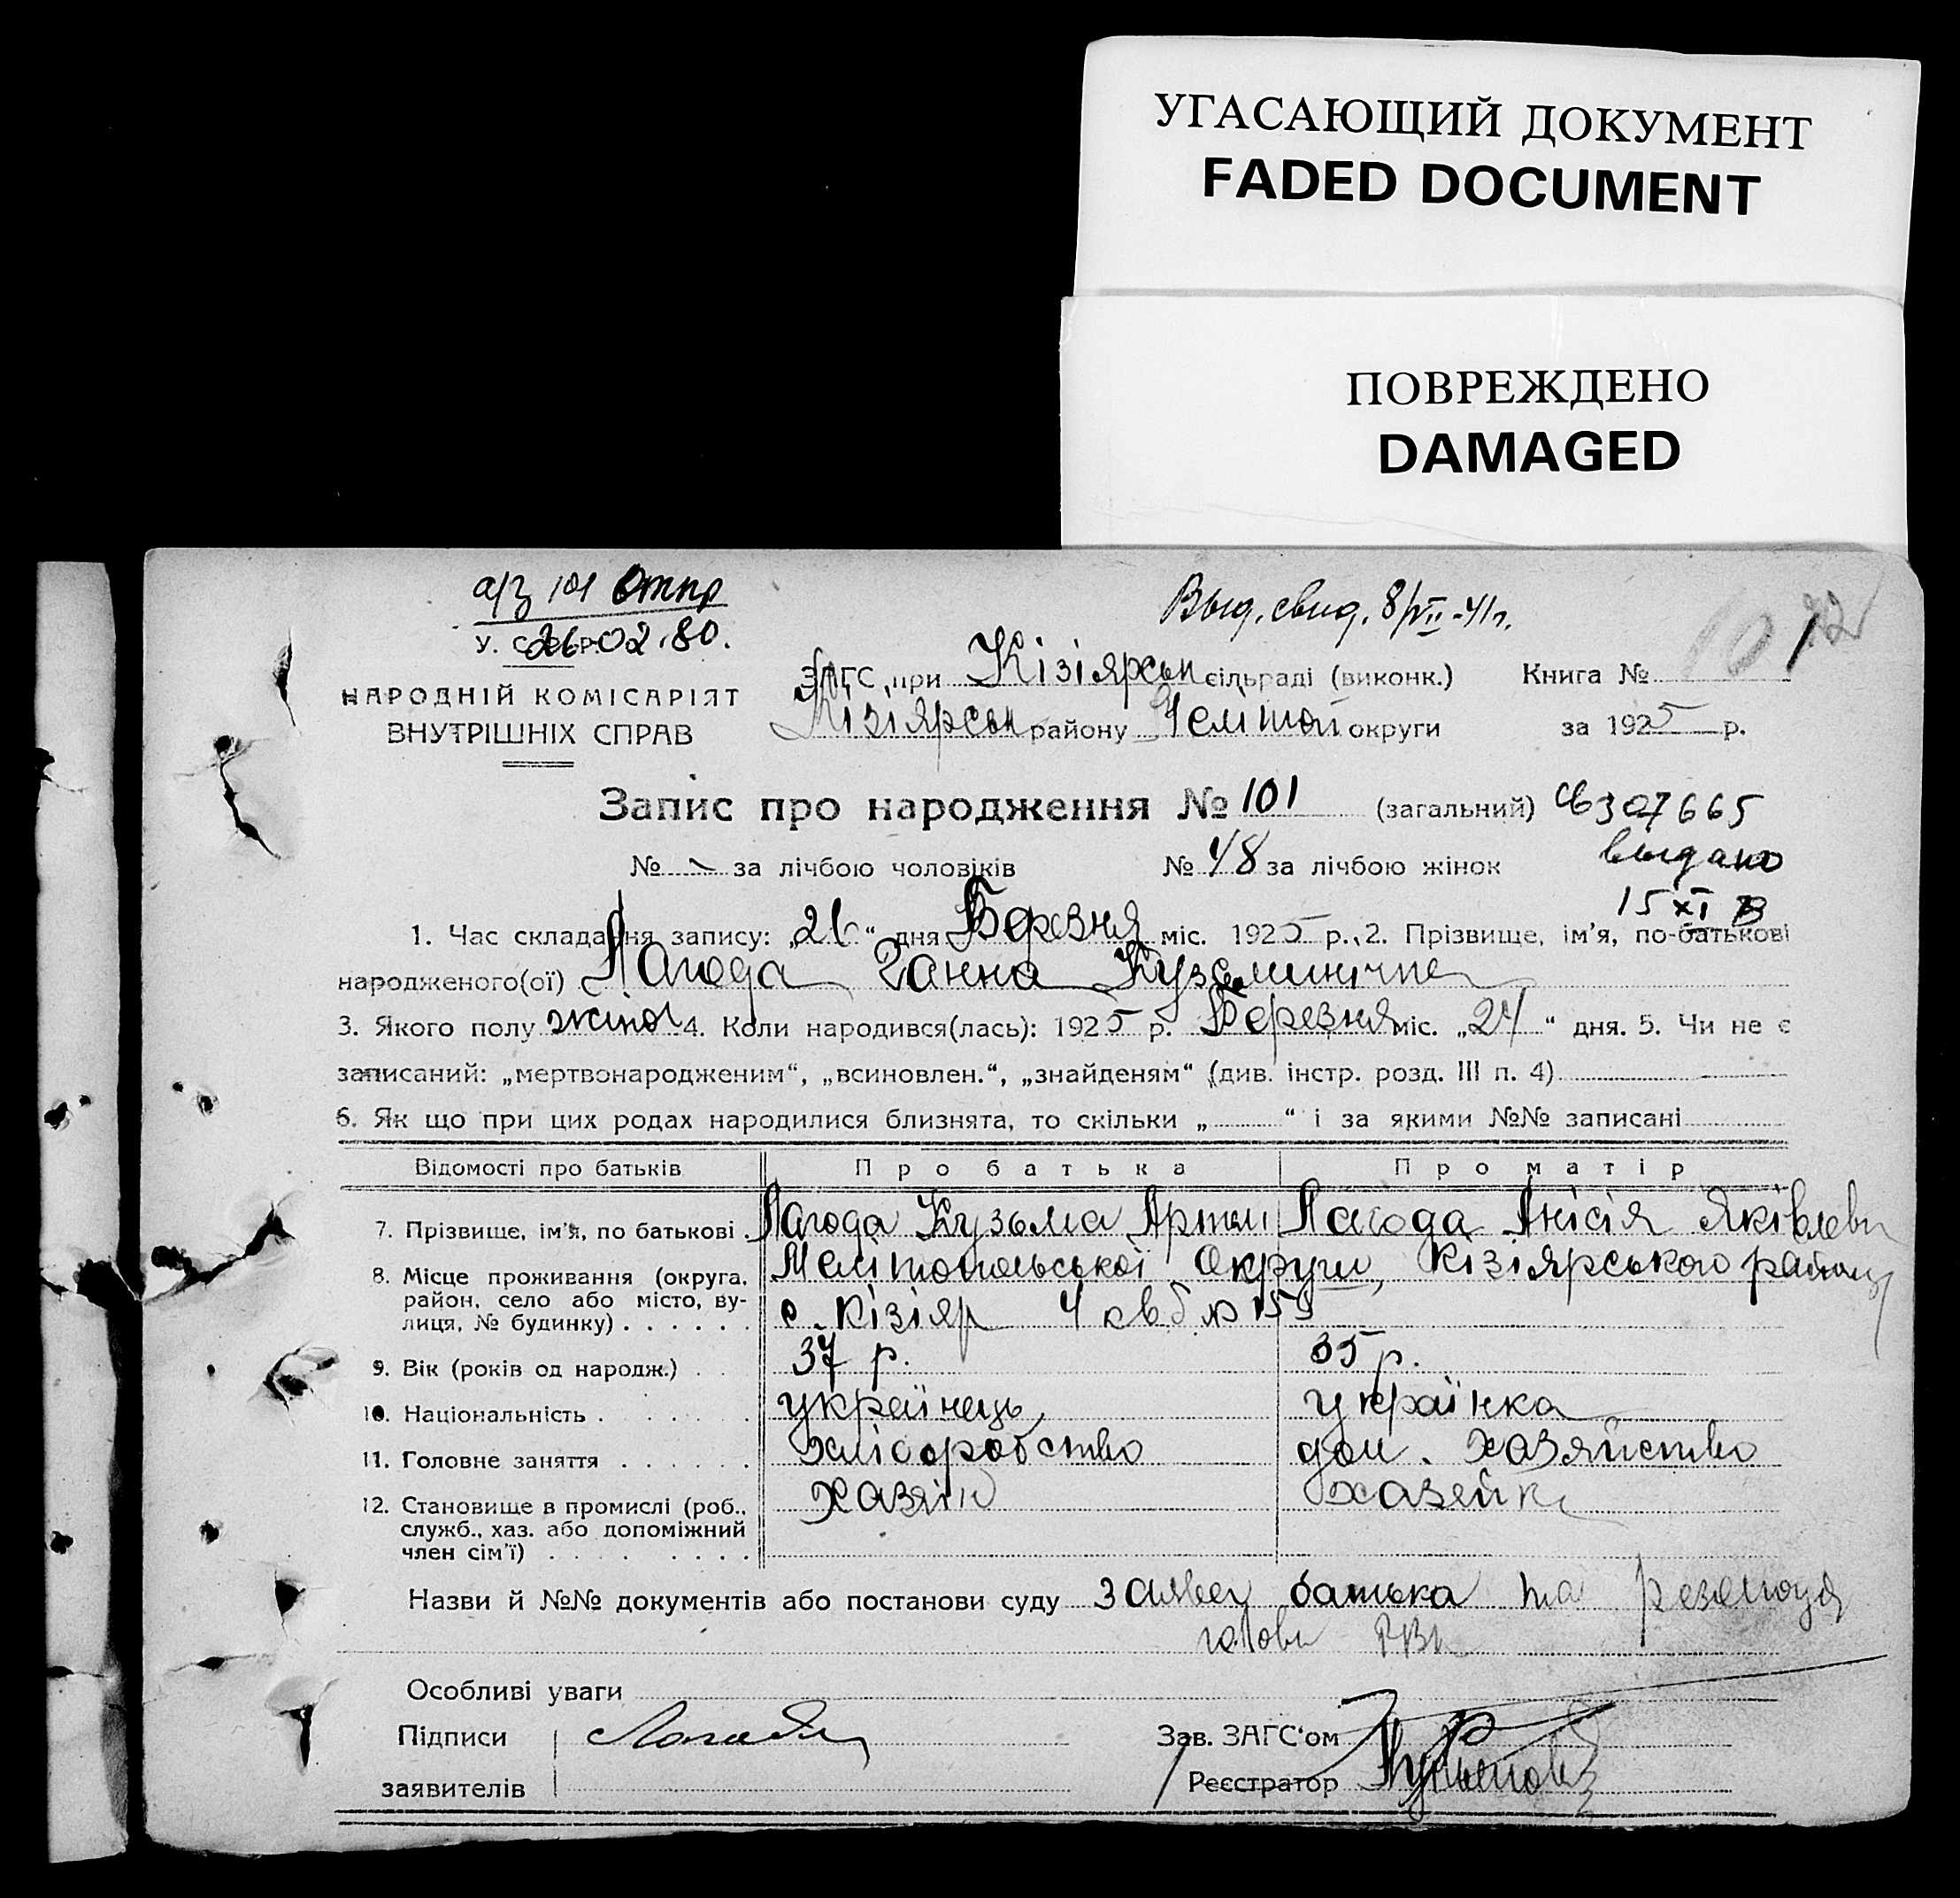 УГАСАЮЩИЙ ДОКУМЕНТ
FADED DOCUMENT
ПОВРЕЖДЕНО
DAMAGED
а/з 101 Отпр
26.02.80.
Выд. свид. 8/VII-41г.
У. С. Р. Р.
72
НАРОДНІЙ КОМІСАРІЯТ
ВНУТРІШНІХ СПРАВ
ЗАГС при Кізіярськ сільраді (виконк.) Книга №
Кізіярськ району Мелітоп округи за 1925 р.
Запис про народження № 101 (загальний) св 307665
№ – за лічбою чоловіків № 48 за лічбою жінок выдано
15 XI
1. Час складання запису: „26“ дня Березня міс. 1925 р. 2. Прізвище, ім’я, по-батькові
народженого(ої) Лагода Ганна Кузьминічна
3. Якого полу жіноч 4. Коли народився(лась): 1925 р. Березня міс. „24“ дня. 5. Чи не є
записаний: „мертвонародженим“, „всиновлен.“, „знайденям“ (див. інстр. розд. III п. 4)
6. Як що при цих родах народилися близнята, то скільки „ “ і за якими №№ записані
Відомості про батьків Про батька Про матір
7. Прізвище, ім’я, по батькові . Лагода Кузьма Артем Лагода Анісія Яківлевн
8. Місце проживання (округа, район, село або місто, вулиця, № будинку) . . . . . . Мелітопольської Округи, Кізіярського району
с. Кізіяр 4 кв б № 159
9. Вік (років од народж.) . . 37 р. 35 р.
10. Національність . . . . . українець українка
11. Головне заняття . . . . . . хліборобство дом. хазяйство
12. Становище в промислі (роб., служб., хаз. або допоміжний член сім’ї) . . . . . . . . хазяїн хазейка
Назви й №№ документів або постанови суду заява батька та резолюція
голови РВК
Особливі уваги
Підписи Лагода Зав. ЗАГС‘ом
заявителів Реєстратор